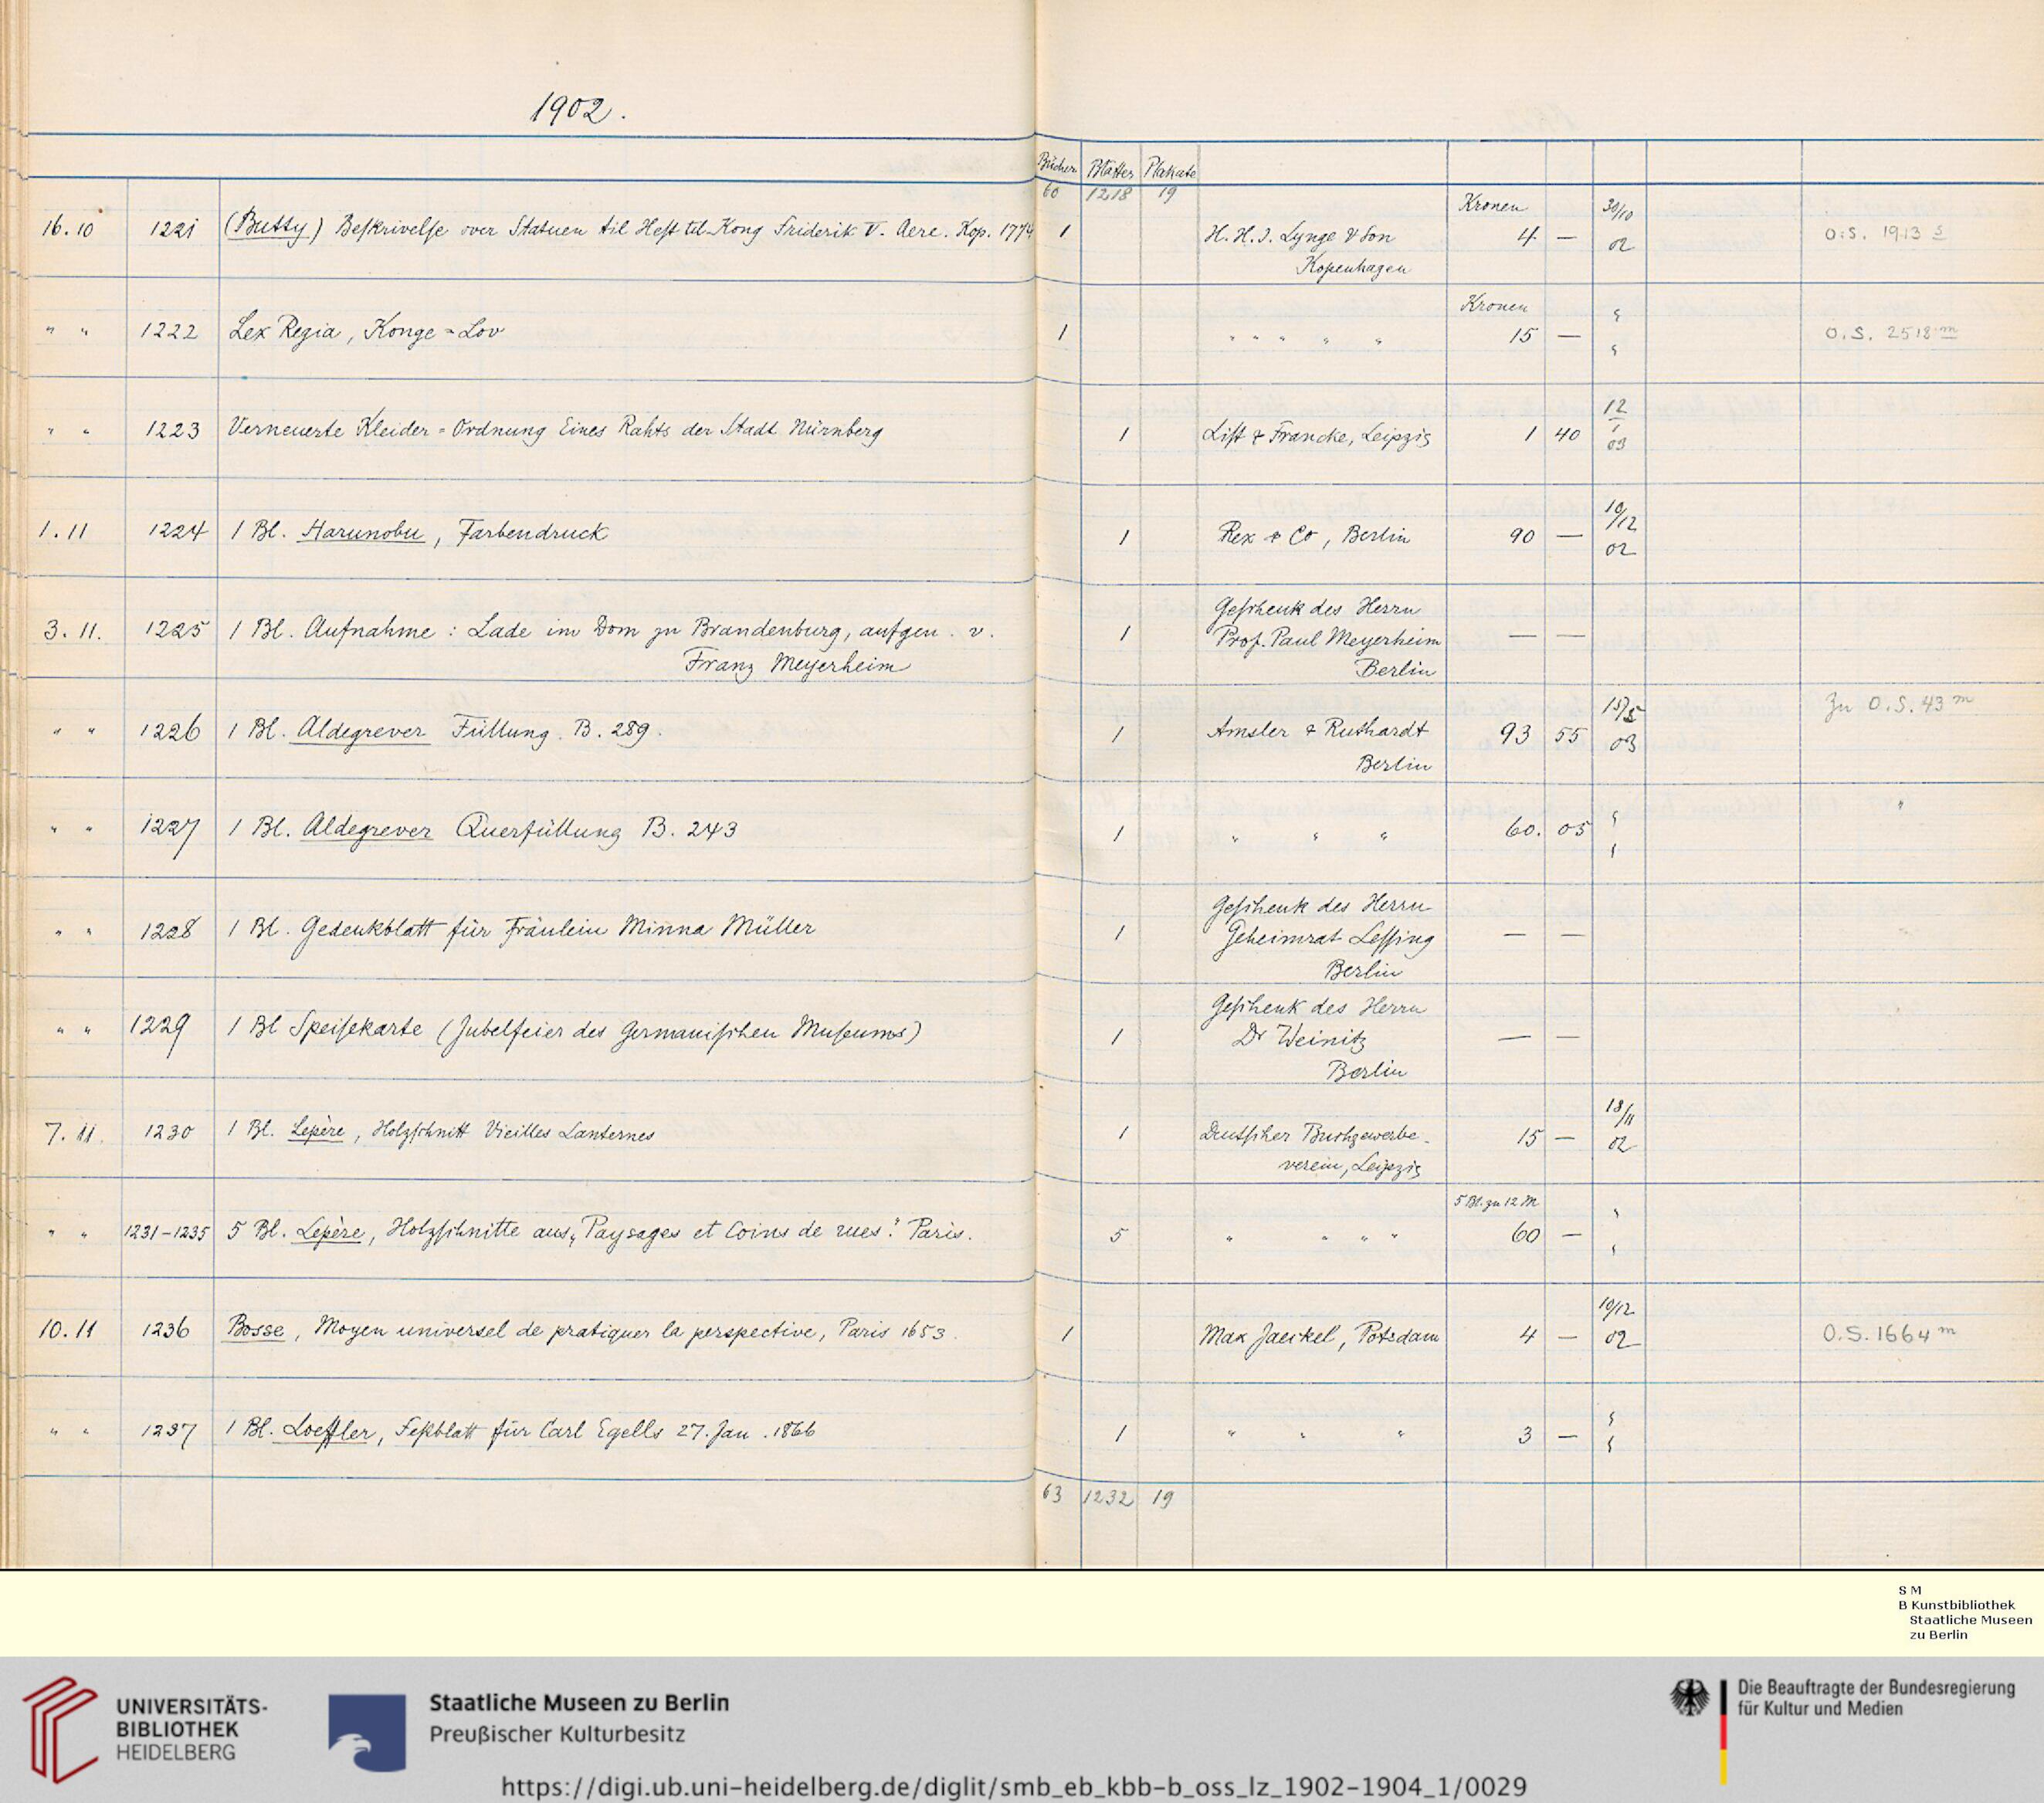 1902.
Bücher Blätter Plakate
60 1218 19
16.10 1221 (Butty) Beskrivelse over Statuen til Hest til Kong Friderik V. Aere. Kop. 1774 1 H. H. J. Lynge & Son Kopenhagen Kronen 4 — 30/10 02 O.S. 1913 s
" " 1222 Lex Regia, Konge=Lov 1 " " " " " Kronen 15 — " " O.S. 2518 m
" " 1223 Verneuerte Kleider=Ordnung Eines Rahts der Stadt Nürnberg 1 List & Francke, Leipzig 1 40 12/1 03
1.11 1224 1 Bl. Harunobu, Farbendruck 1 Rex & Co, Berlin 90 — 10/12 02
3.11. 1225 1 Bl. Aufnahme: Lade im Dom zu Brandenburg, aufgen. v.
Franz Meyerheim 1 Geschenk des Herrn
Prof. Paul Meyerheim
Berlin — —
" " 1226 1 Bl. Aldegrever Füllung. B. 289. 1 Amsler & Ruthardt
Berlin 93 55 15/5 03 Zu O.S. 43 m
" " 1227 1 Bl. Aldegrever Querfüllung B. 243 1 " " " 60. 05 " " "
" " 1228 1 Bl. Gedenkblatt für Fräulein Minna Müller 1 Geschenk des Herrn
Geheimrat Lessing
Berlin — —
" " 1229 1 Bl Speisekarte (Jubelfeier des Germanischen Museums) 1 Geschenk des Herrn
Dr Weinitz
Berlin — —
7.11. 1230 1 Bl. Lepère, Holzschnitt Vieilles Lanternes 1 Deutscher Buchgewerbe-
verein, Leipzig 15 — 18/11 02
" " 1231-1235 5 Bl. Lepère, Holzschnitte aus „Paysages et Coins de rues". Paris. 5 " " " " 5 Bl. zu 12 M 60 — " "
10.11 1236 Bosse, Moyen universel de pratiquer la perspective, Paris 1653. 1 Max Jaeckel, Potsdam 4 — 10/12 02 O.S. 1664 m
" " 1237 1 Bl. Loeffler, Festblatt für Carl Egells 27. Jan. 1866 1 " " " 3 — " "
63 1232 19
S M
B Kunstbibliothek
Staatliche Museen
zu Berlin
UNIVERSITÄTS-
BIBLIOTHEK
HEIDELBERG
Staatliche Museen zu Berlin
Preußischer Kulturbesitz
Die Beauftragte der Bundesregierung
für Kultur und Medien
https://digi.ub.uni-heidelberg.de/diglit/smb_eb_kbb-b_oss_lz_1902-1904_1/0029